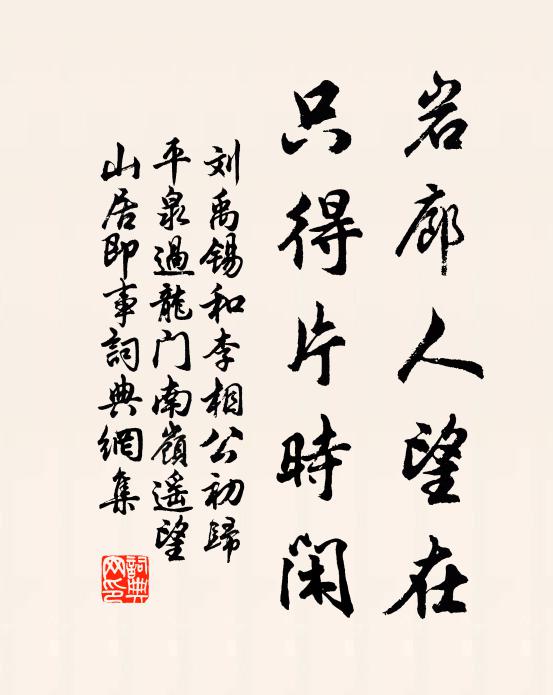 岩廊人望在
只得片時闲
刘禹锡和李相公初歸
平泉過龍门南嶺遥望
山居即事詞典網集
詞典网印